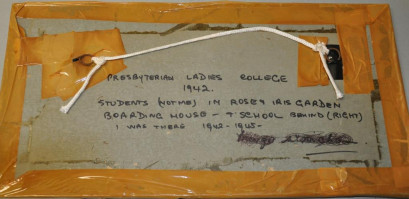 PRESBYTERIAN LADIES COLLEGE
1942.
STUDENTS (NOT ME) IN ROSE & IRIS GARDEN
BOARDING HOUSE - & SCHOOL BEHIND (RIGHT)
I WAS THERE 1942-1945-